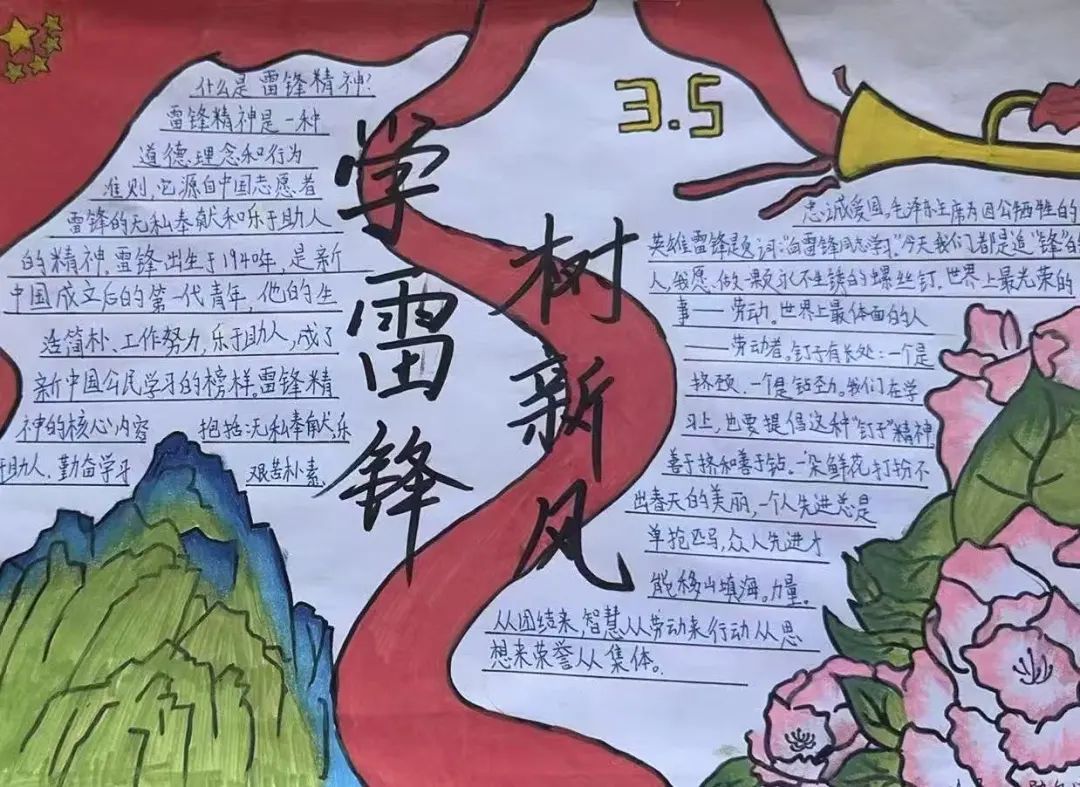 什么是雷锋精神?
雷锋精神是一种
道德理念和行为
准则,它源自中国志愿者
雷锋的无私奉献和乐于助人
的精神。雷锋出生于1940年,是新
中国成立后的第一代青年,他的生
活简朴、工作努力,乐于助人,成了
新中国公民学习的榜样。雷锋精
神的核心内容 抱括:无私奉献,乐
于助人、勤奋学习 艰苦朴素、
学雷锋
树新风
3.5
忠诚爱国,毛泽东主席为因公牺牲的
英雄雷锋题词:"向雷锋同志学习"今天我们都是追"锋"的
人,我愿做一颗永不生锈的螺丝钉。世界上最光荣的
事——劳动。世界上最体面的人
——劳动者。钉子有长处:一个是
挤颈、一个是钻劲。我们在学
习上,也要提倡这种"钉子"精神,
善于挤和善于钻。一朵鲜花打扮不
出春天的美丽,一个人先进总是
单抢匹马,众人先进才
能移山填海。力量。
从团结来,智慧从劳动来行动从思
想来荣誉从集体。